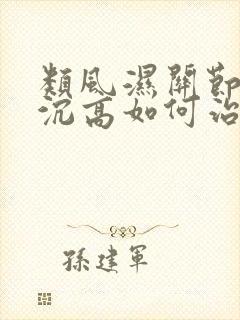 類風濕關節
沉高如何治
孫建軍